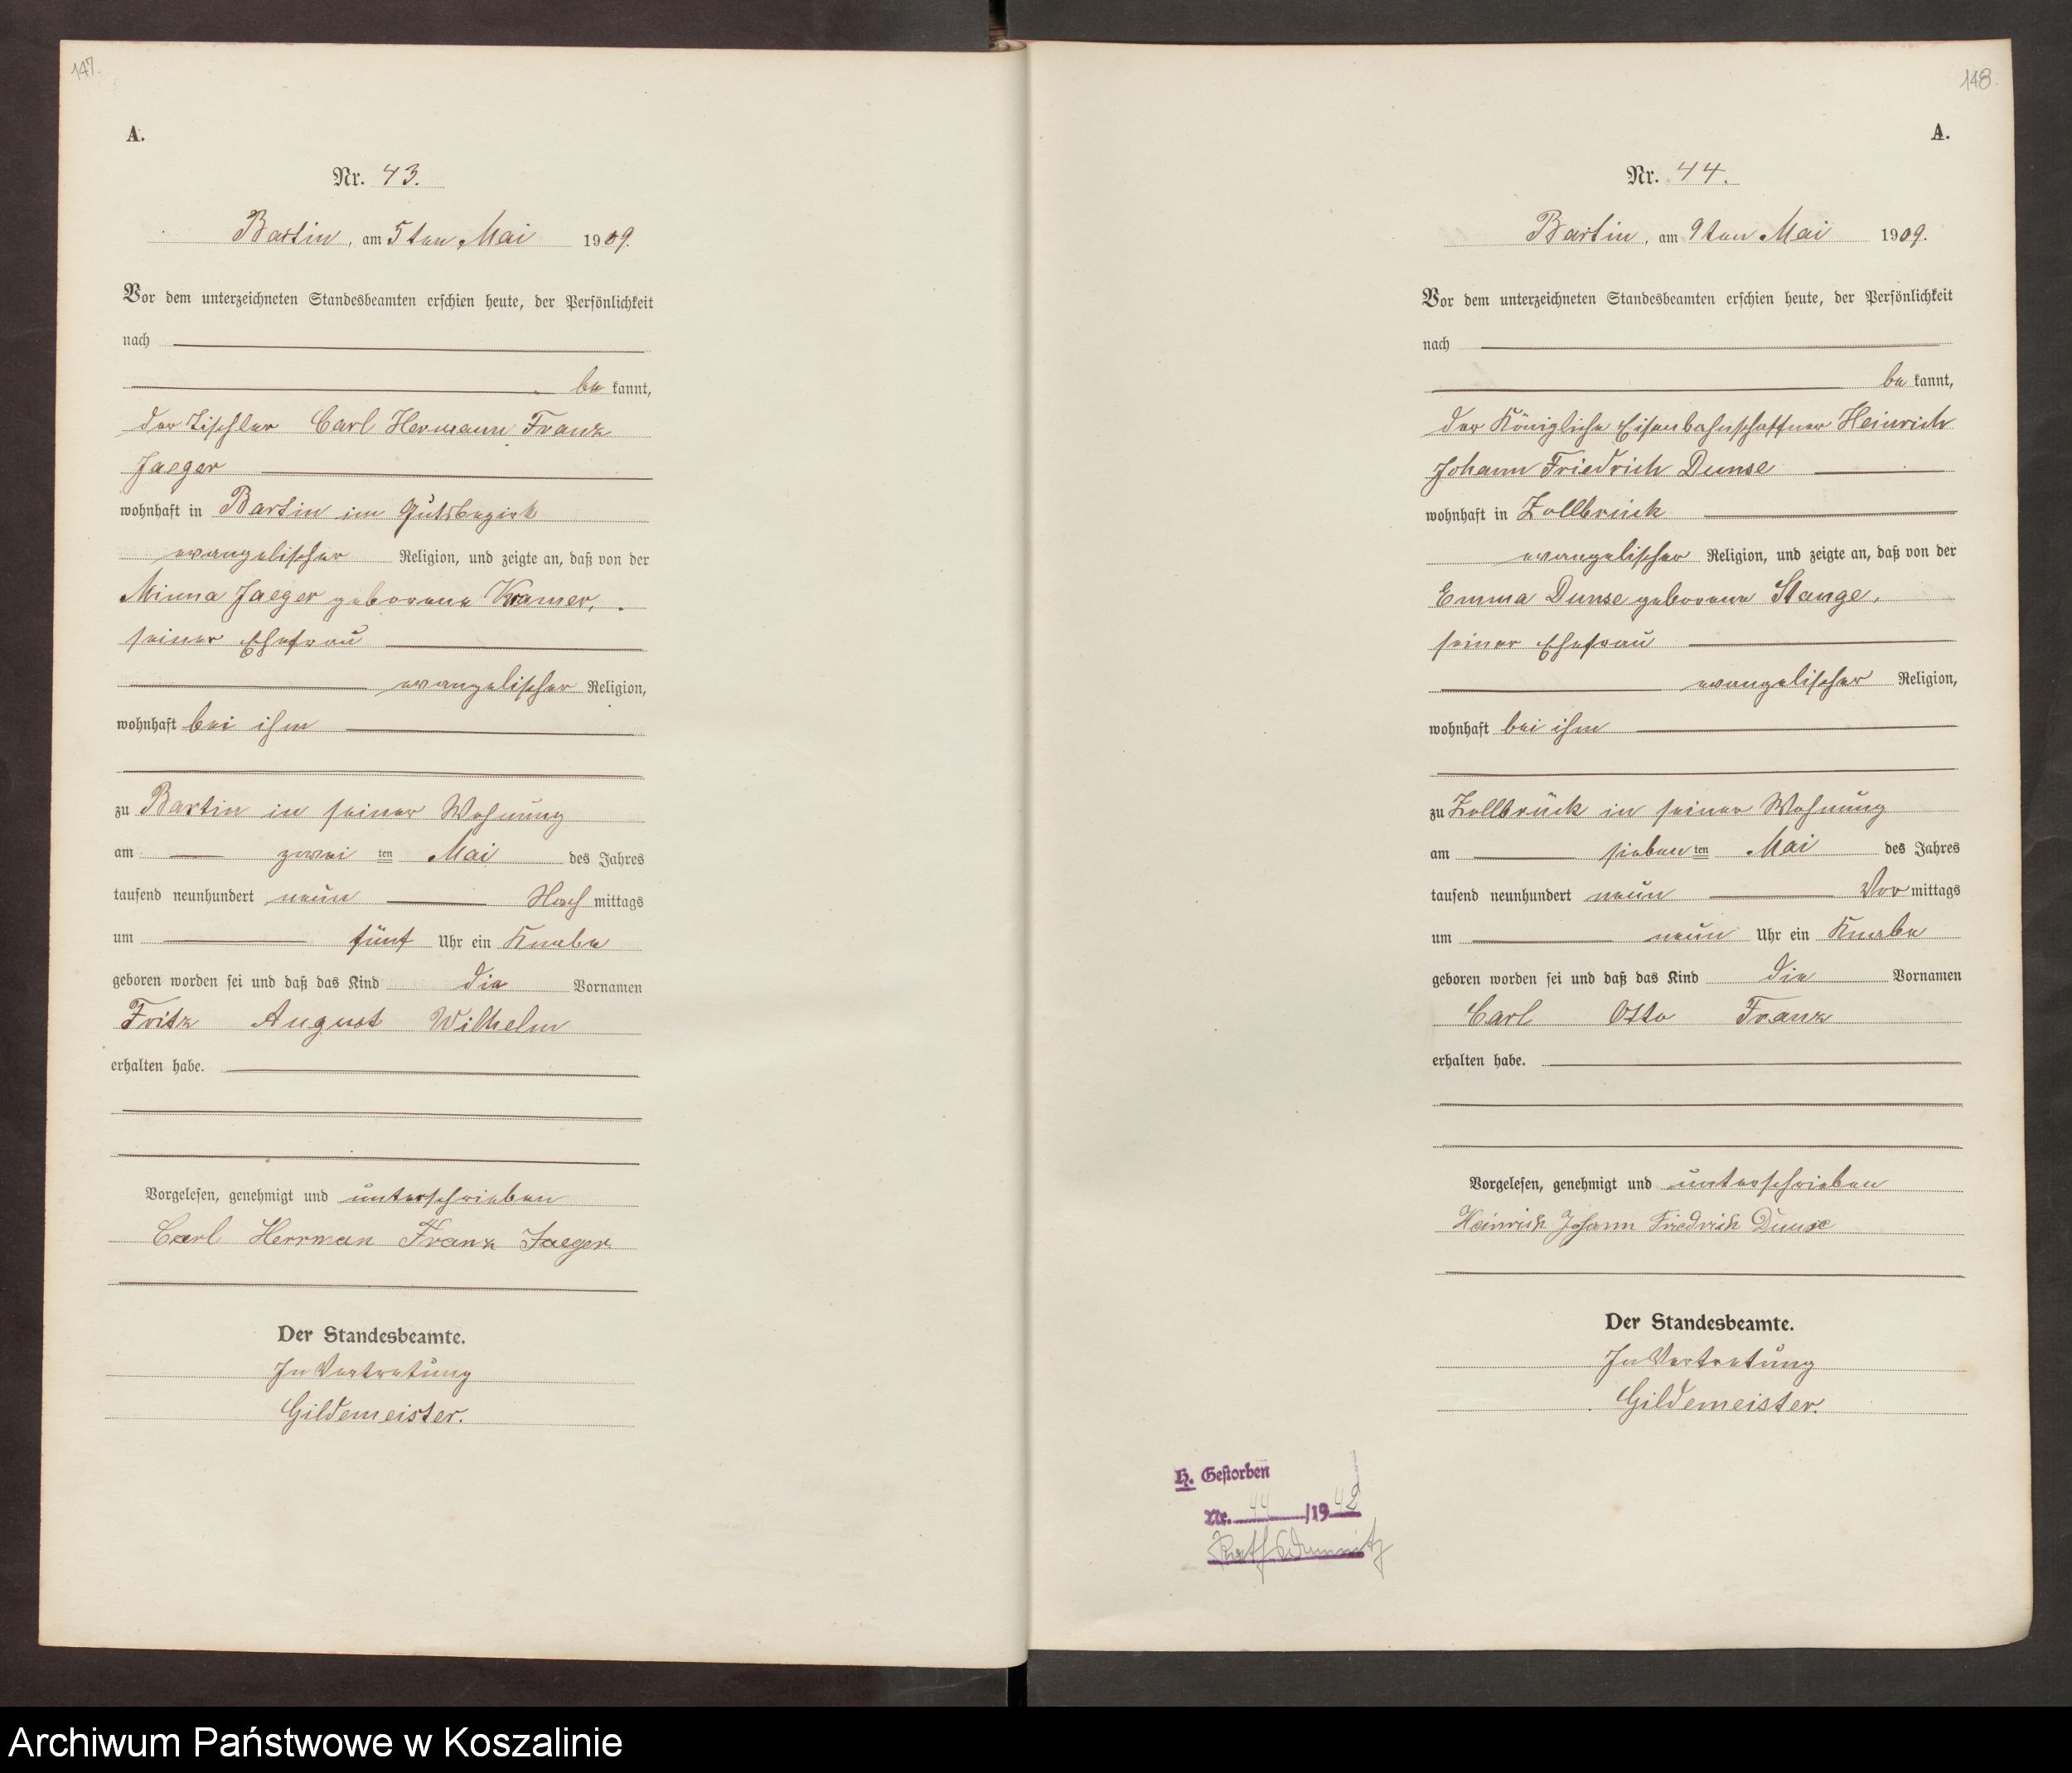 147.
A.
Nr. 43.
Bartin, am 5ten Mai 1909.
Vor dem unterzeichneten Standesbeamten erschien heute, der Persönlichkeit
nach
be kannt,
der Tischler Carl Hermann Franz
Jaeger
wohnhaft in Bartin im Gutsbezirk
evangelischer Religion, und zeigte an, daß von der
Minna Jaeger geborene Kramer,
seiner Ehefrau
evangelischer Religion,
wohnhaft bei ihm
zu Bartin in seiner Wohnung
am zwei ten Mai des Jahres
tausend neunhundert neun Nach mittags
um fünf Uhr ein Knabe
geboren worden sei und daß das Kind die Vornamen
Fritz August Wilhelm
erhalten habe.
Vorgelesen, genehmigt und unterschrieben
Carl Herrman Franz Jaeger
Der Standesbeamte.
In Vertretung
Gildemeister.
148.
A.
Nr. 44.
Bartin, am 9ten Mai 1909.
Vor dem unterzeichneten Standesbeamten erschien heute, der Persönlichkeit
nach
be kannt,
der Königliche Eisenbahnschaffner Heinrich
Johann Friedrich Dunse
wohnhaft in Zollbrück
evangelischer Religion, und zeigte an, daß von der
Emma Dunse geborene Stange,
seiner Ehefrau
evangelischer Religion,
wohnhaft bei ihm
zu Zollbrück in seiner Wohnung
am sieben ten Mai des Jahres
tausend neunhundert neun Vor mittags
um neun Uhr ein Knabe
geboren worden sei und daß das Kind die Vornamen
Carl Otto Franz
erhalten habe.
Vorgelesen, genehmigt und unterschrieben
Heinrich Johann Friedrich Dunse
Der Standesbeamte.
In Vertretung
Gildemeister.
H. Gestorben
Nr. 44 /1942
Rathsdamnitz
Archiwum Państwowe w Koszalinie